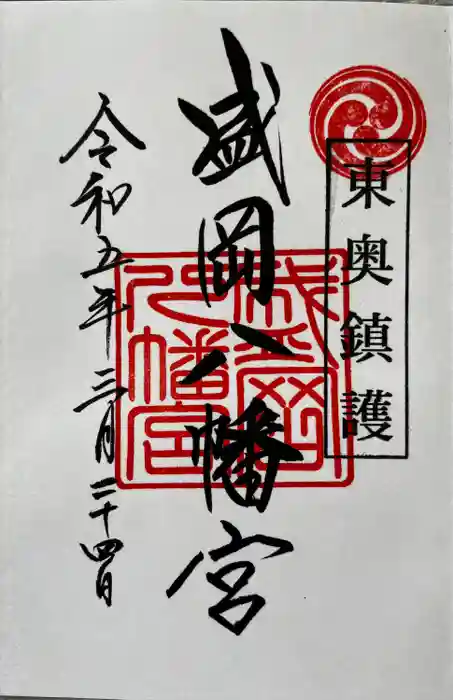 東奥鎮護
盛岡八幡宮
盛岡八幡宮
令和五年三月二十四日